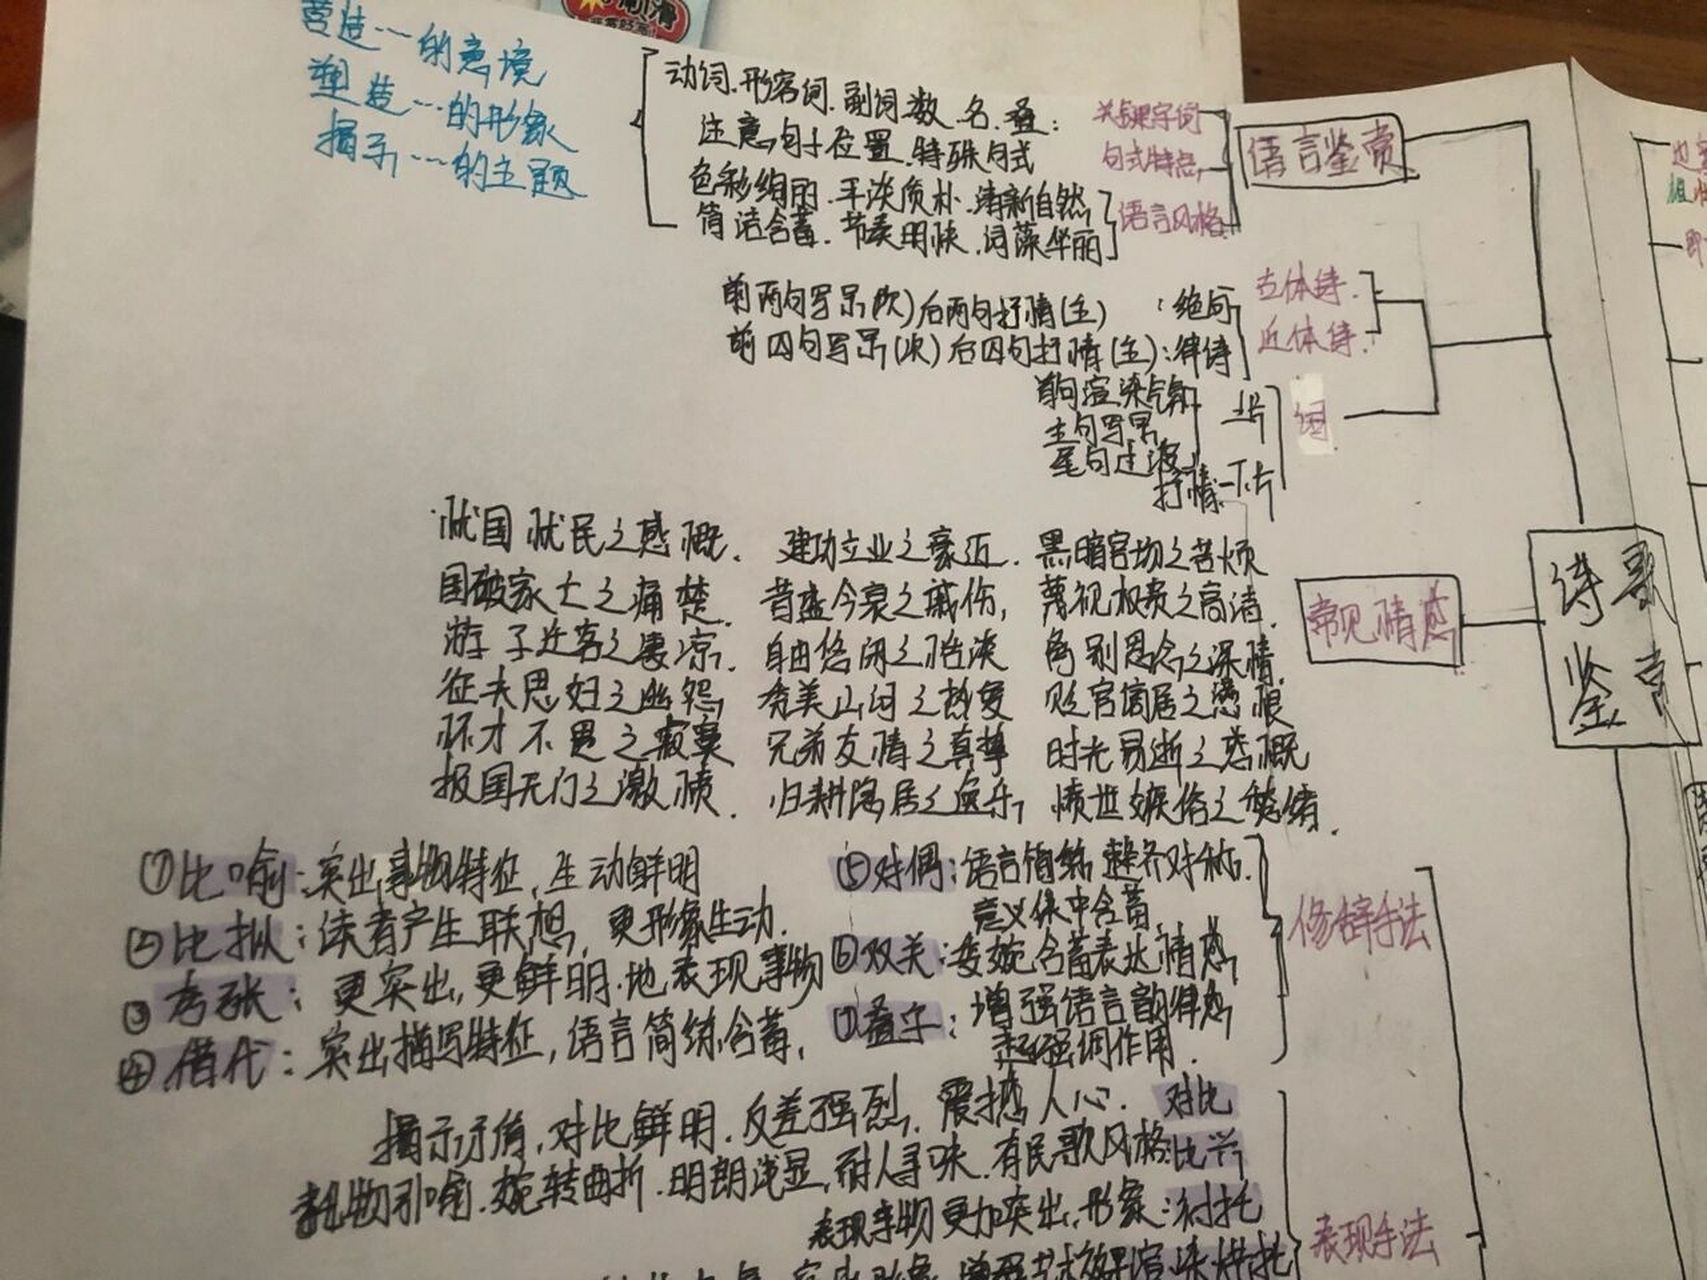 营造…的意境
塑造…的形象
揭示…的主题
动词.形容词.副词.数.名.叠:关键字词
注意句子位置.特殊句式 句式特点
语言鉴赏
色彩绚丽.平淡质朴.清新自然
简洁含蓄.节奏明快.词藻华丽
语言风格
前两句写景(次)后两句抒情(主):绝句
古体诗.
前四句写景(次)后四句抒情(主):律诗
近体诗.
首句渲染气氛
主句写景
上片
词
尾句过渡
抒情-下片
忧国忧民之感慨.建功立业之豪迈.黑暗官场之苦烦
国破家亡之痛楚.昔盛今衰之感伤,蔑视权贵之高洁.
常见情感
诗歌鉴赏
游子迁客之凄凉.自由悠闲之恬淡 离别思念之深情.
征夫思妇之幽怨 秀美山河之热爱 贬官谪居之愁恨
怀才不遇之寂寞 兄弟友情之真挚 时光易逝之感慨
报国无门之激愤.归耕隐居之 愤世嫉俗之愁绪.
①比喻:突出事物特征,生动鲜明
②比拟:读者产生联想,更形象生动.
③夸张:更突出,更鲜明.地表现事物
④借代:突出描写特征,语言简练含蓄,
⑤对偶:语言简练 整齐对称.
意义集中含蓄
⑥双关:委婉含蓄表达情感
⑦叠字:增强语言韵律感
起强调作用.
修辞手法
揭示矛盾,对比鲜明.反差强烈,震撼人心.对比
托物引喻.婉转曲折.明朗浅显,耐人寻味.有民歌风格:比兴
表现事物更加突出,形象:衬托
表现手法
渲染烘托